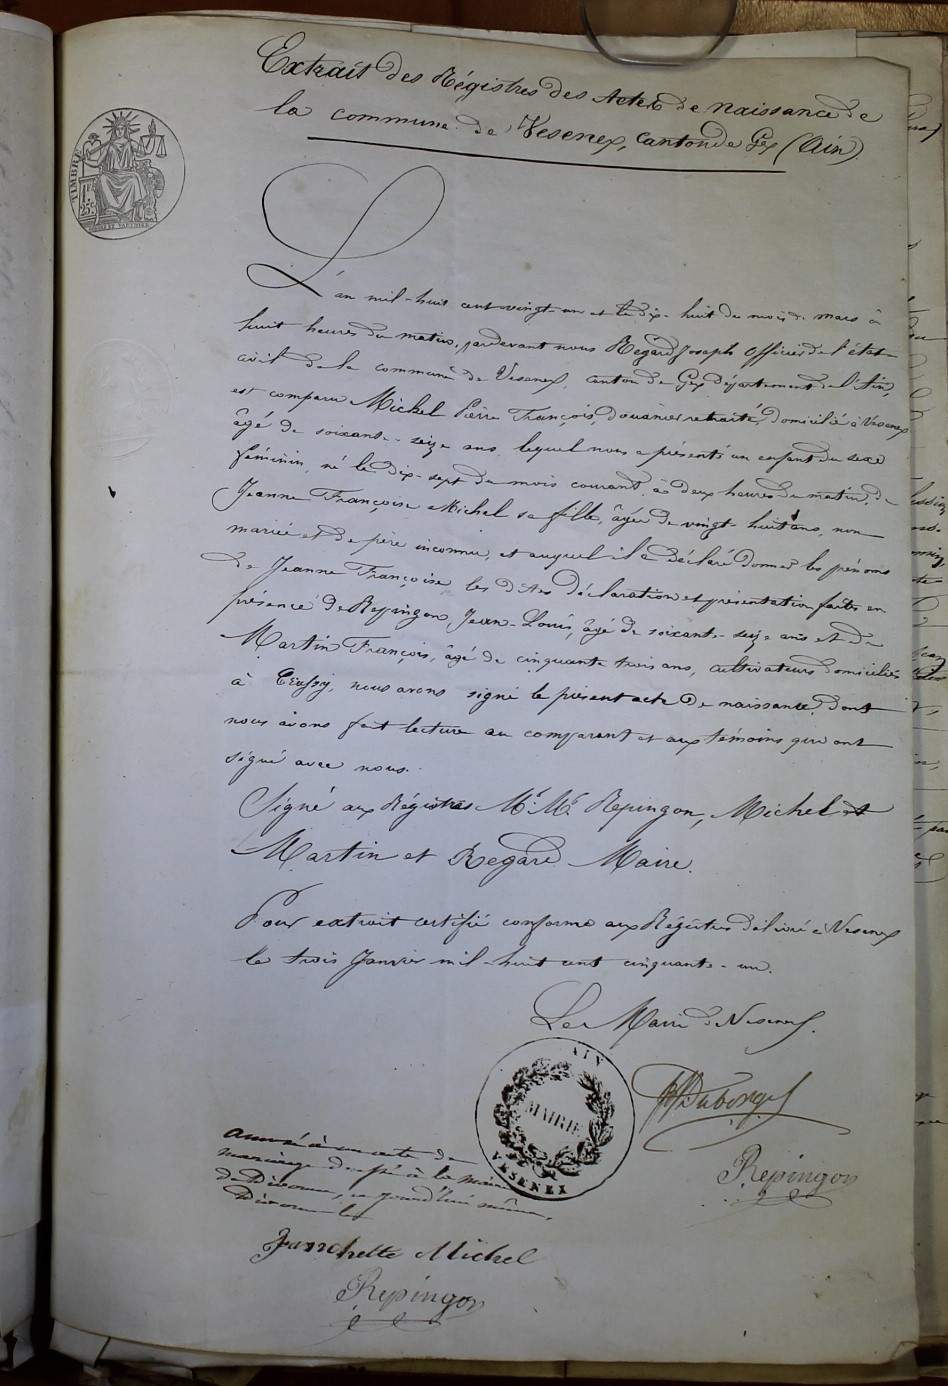 Extrait des Régistres des Actes de naissance de
la commune de Vesenex, canton de Gex (Ain).
TIMBRE
L'an mil-huit cent vingt-un et le dix-huit du mois de mars à
huit heures du matin, pardevant nous Regard Joseph officier de l'état-
civil de la commune de Vesenex, canton de Gex département de l'Ain,
est comparu Michel Pierre François, douanier retraité, domicilié à Vesenex
âgé de soixante-seize ans, lequel nous a présenté un enfant du sexe
féminin, né le dix-sept du mois courant, à deux heures du matin, de
Jeanne Françoise Michel sa fille, âgée de vingt-huit ans, non
mariée et de père inconnu, et auquel il a déclaré donner les prénoms
de Jeanne Françoise les dites déclaration et présentation faites en
présence de Repingon, Jean-Louis, âgé de soixante-seize ans et de
Martin François, âgé de cinquante trois ans, cultivateurs domiciliés
à Crassy, nous avons signé le présent acte de naissance, dont
nous avons fait lecture au comparant et aux témoins qui ont
signé avec nous.
Signé aux Régistres Mr. Mr. Repingon, Michel et
Martin et Regard Maire.
Pour extrait certifié conforme aux Régistres délivré à Vesenex
le trois Janvier mil-huit cent cinquante-un.
Le Maire de Vesenex.
AIN
MAIRIE
DE
VESENEX
Duborgel
Repingon
annexé à un acte de
mariage de ce jour à la mairie
de Divonne, ce jourd'hui même,
Divonne le
Franchette Michel
Repingon